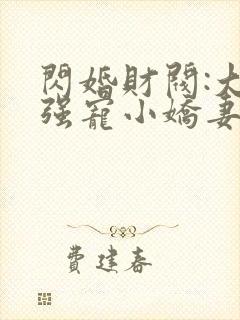 閃婚財閥:大
强寵小嬌妻
費建春